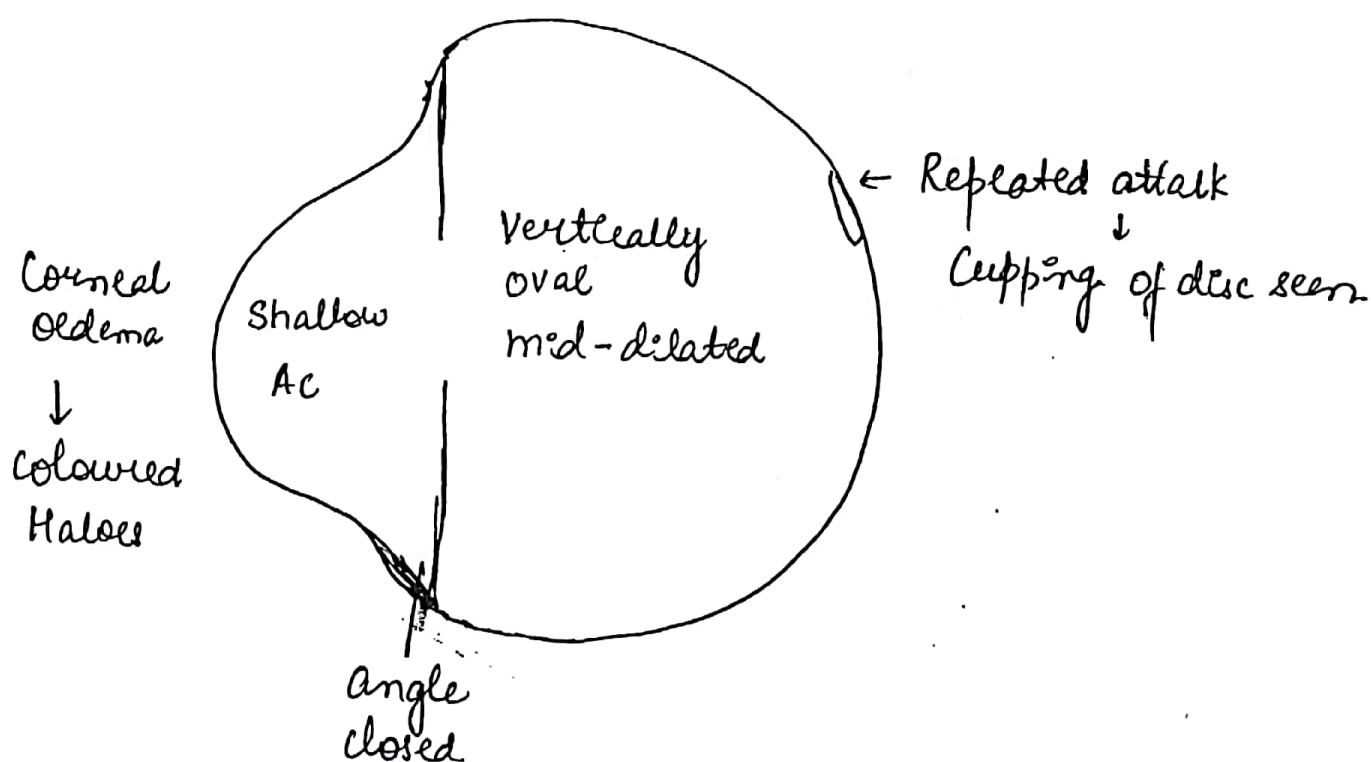 Corneal
oedema
↓
Coloured
Haloes
Shallow
AC
Vertically
oval
mid-dilated
← Repeated attack
↓
Cupping of disc seen
Angle
closed